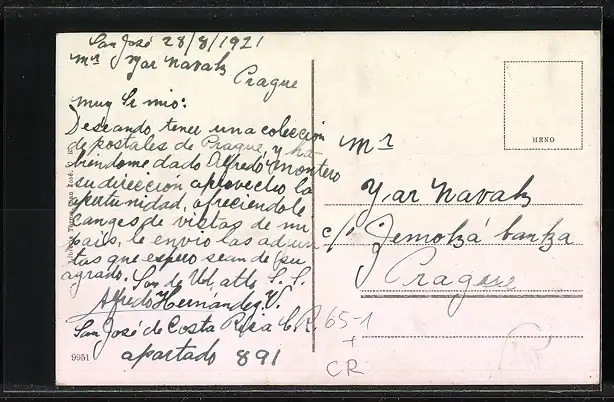 San José 28/8/1921
Mr Yar Navak
Prague
muy Sr mio:
Deseando, tener una colección
de postales de Prague, y ha-
biéndome dado Alfredo Montero
su dirección aprovecho la
oportunidad, ofreciendole
canges de vistas de mi
pais, le envio las adjun-
tas que espero sean de su
agrado. Soy de Ud, atto, S. S.
Alfredo Hernández V.
San José de Costa Rica C. R.
apartado 891
9951
HENO
Mr
Yar Navak
c/ Zemoká banka
Prague
65-1
+
CR